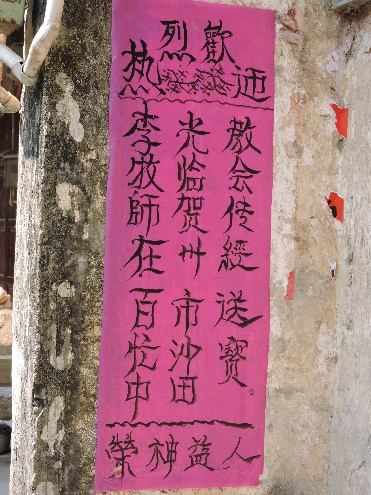 热烈歡迎
李牧師在百忙中
光临贺州市沙田
教会传經送寶。
榮神益人